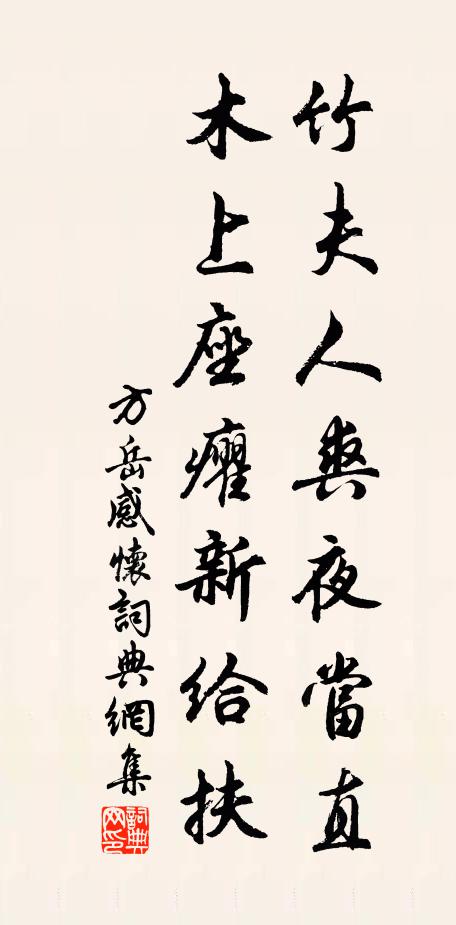 竹夫人爽夜當直
木上座癯新給扶
方岳感懷詞典網集
詞典網印